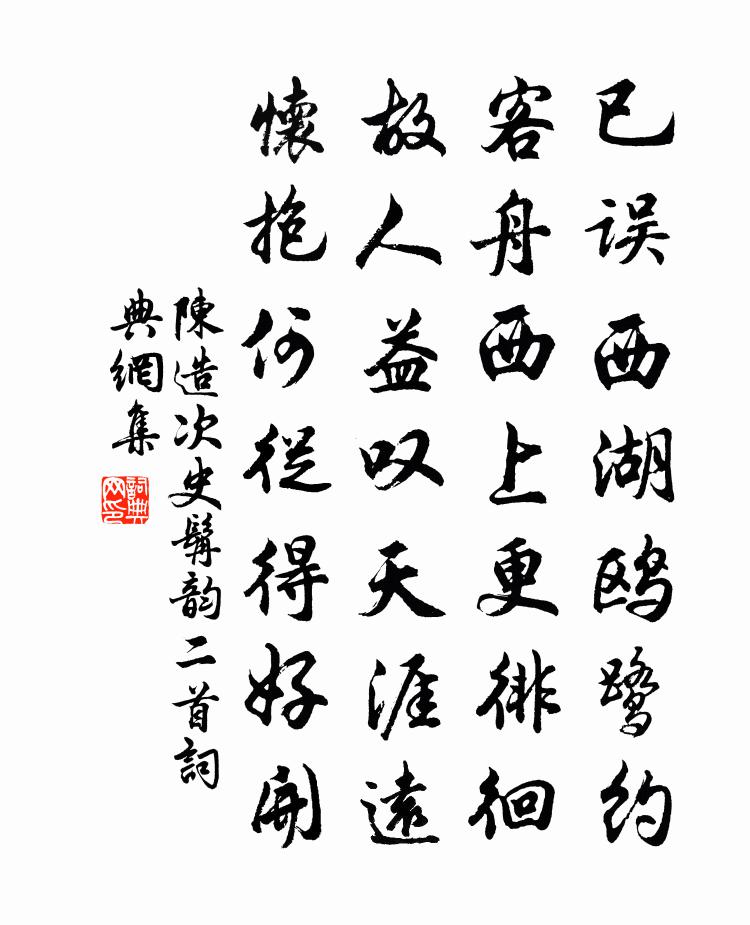 已误西湖鸥鹭约
客舟西上更徘徊
故人益叹天涯遠
懷抱何從得好開
陳造次史髯韵二首詞
典網集
詞典网印